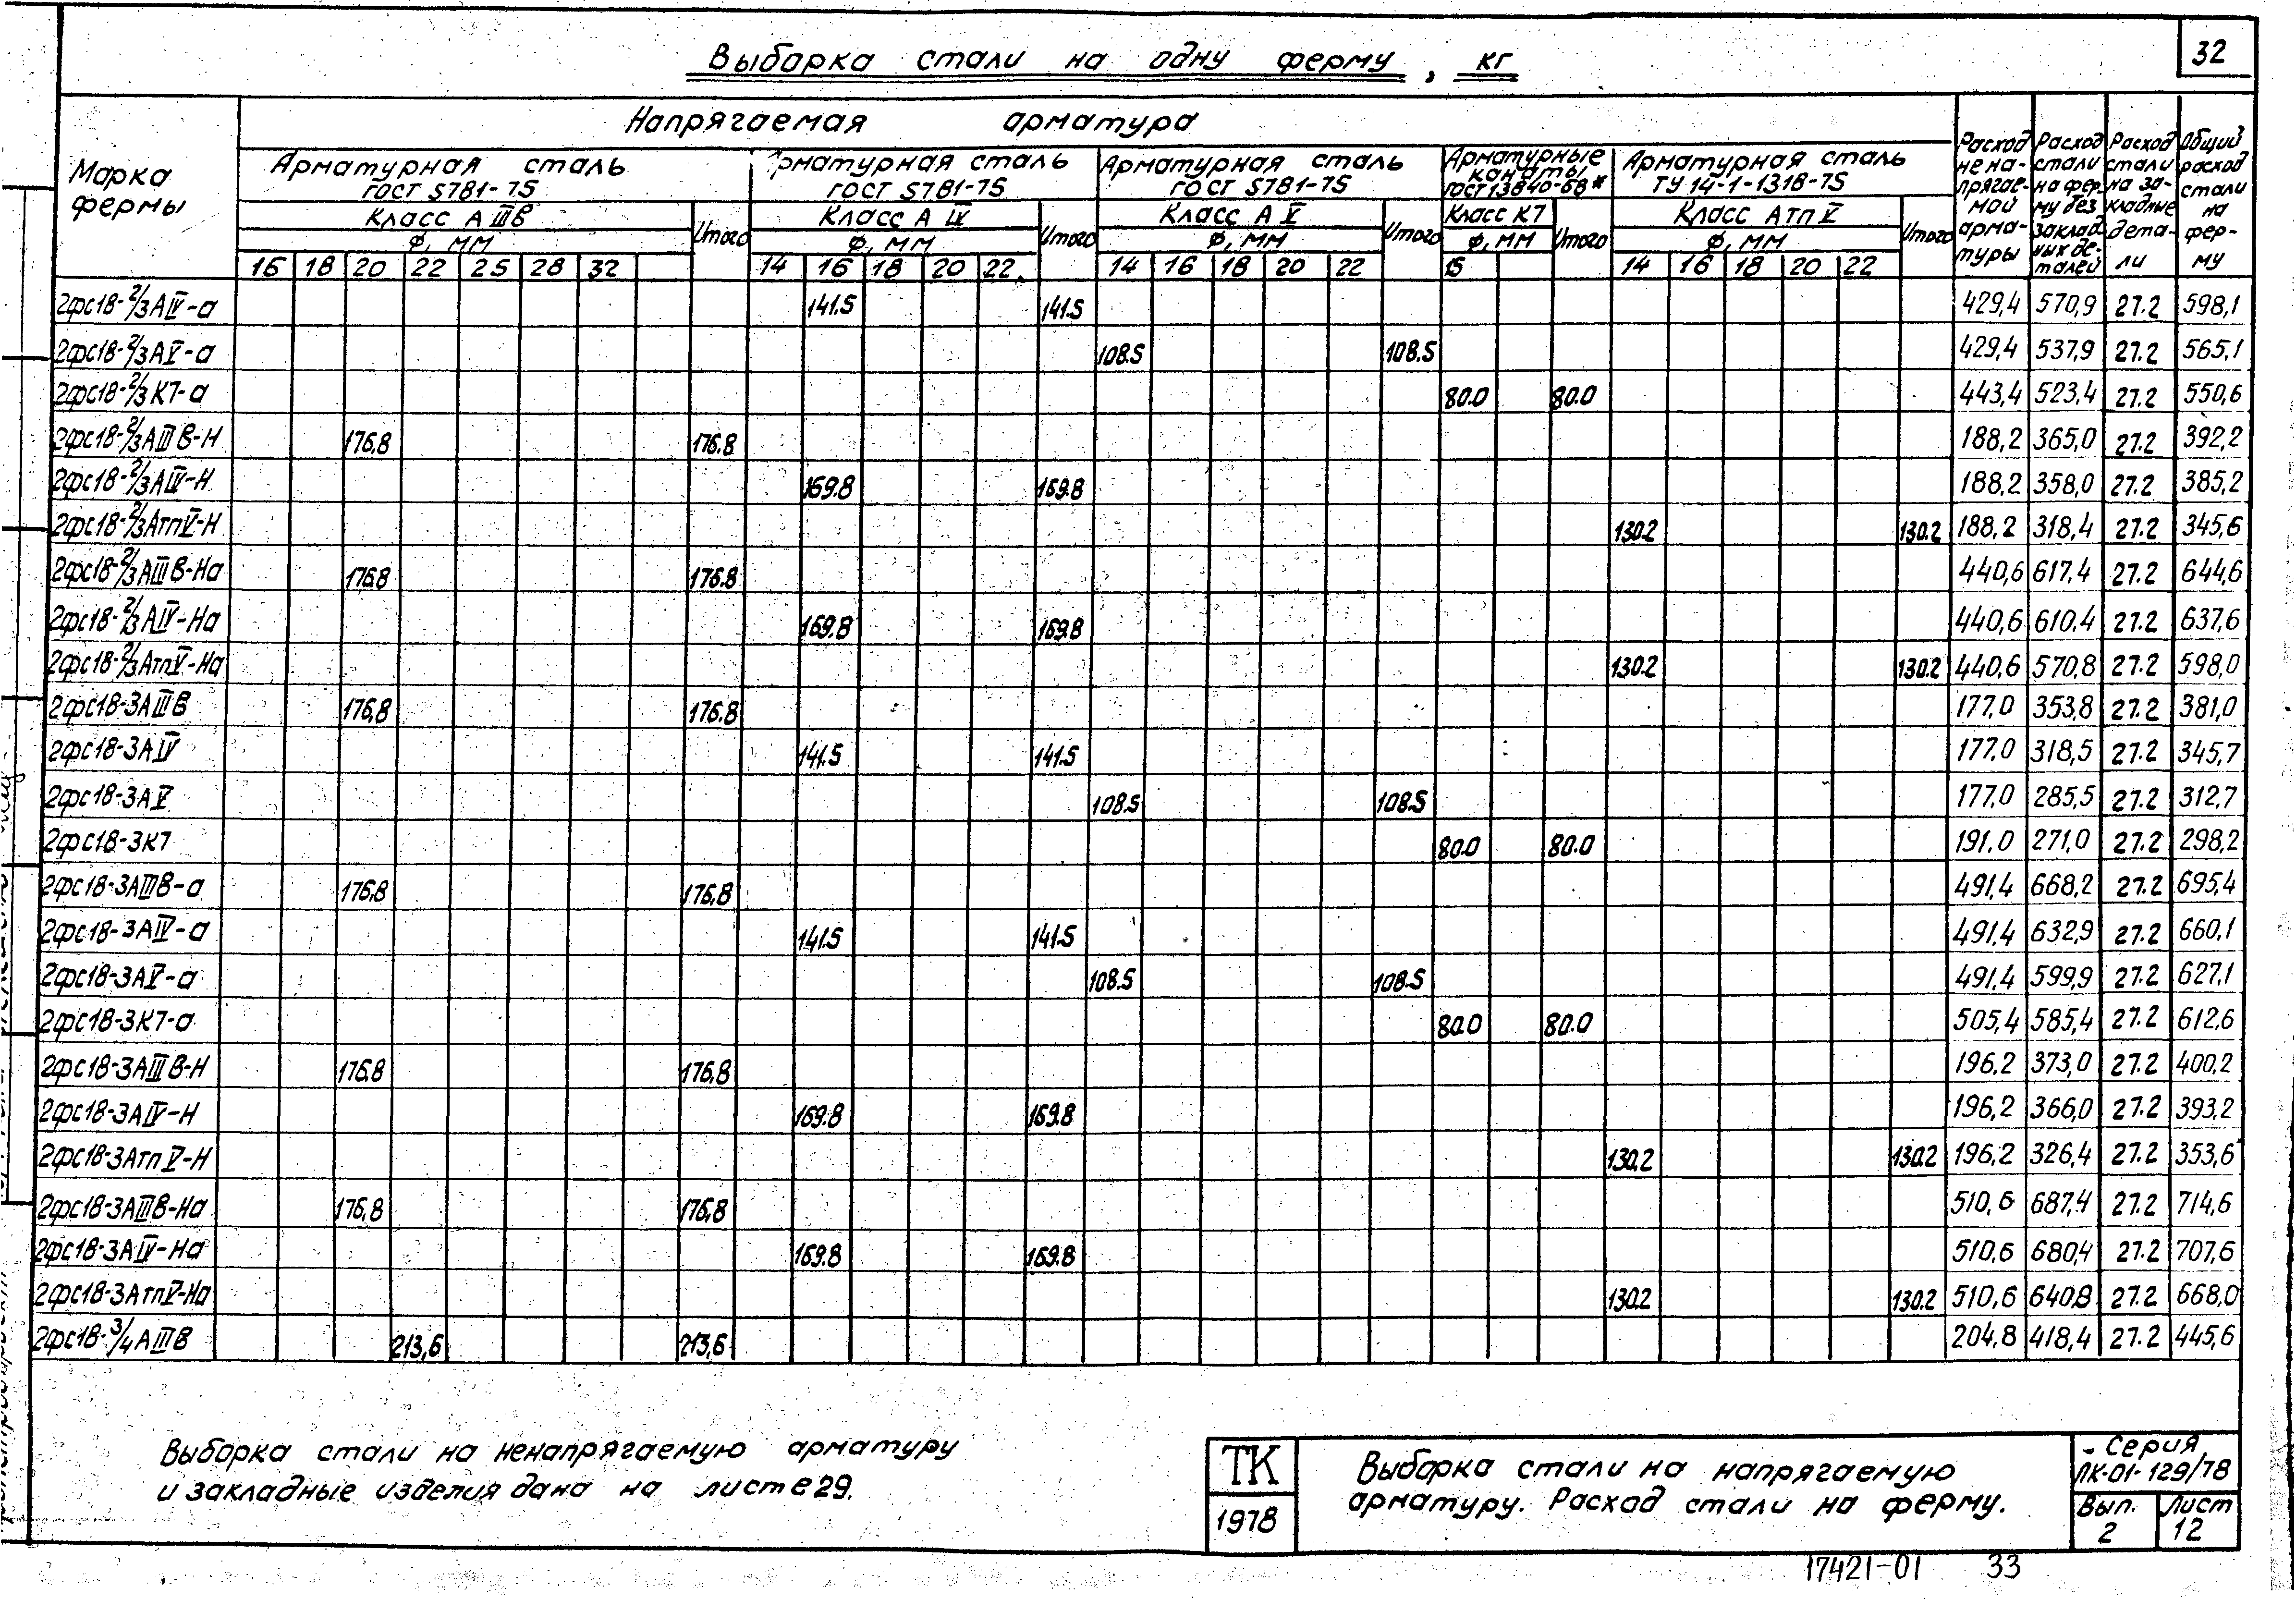 32
Выборка стали на одну ферму, кг
Марка фермы
Напрягаемая арматура
Арматурная сталь ГОСТ 5781-75
Класс А IIIв
Ф, мм
16 18 20 22 25 28 32
Итого
Арматурная сталь ГОСТ 5781-75
Класс А IV
Ф, мм
14 16 18 20 22
Итого
Арматурная сталь ГОСТ 5781-75
Класс А V
Ф, мм
14 16 18 20 22
Итого
Арматурные канаты ГОСТ 13840-68*
Класс К7
Ф, мм
15
Итого
Арматурная сталь ТУ 14-1-1318-75
Класс Атп V
Ф, мм
14 16 18 20 22
Итого
Расход ненапрягаемой арматуры
Расход стали на ферму без закладных деталей
Расход стали на закладные детали
Общий расход стали на ферму
2фс18-2/3АIV-а 141.5 141.5 429,4 570,9 27.2 598,1
2фс18-2/3АV-а 108.5 108.5 429,4 537,9 27.2 565,1
2фс18-2/3К7-а 80.0 80.0 443,4 523,4 27.2 550,6
2фс18-2/3АIIIв-Н 176,8 176.8 188,2 365,0 27.2 392,2
2фс18-2/3АIV-Н 169.8 169.8 188,2 358,0 27.2 385,2
2фс18-2/3АтпV-Н 130.2 130.2 188,2 318,4 27.2 345,6
2фс18-2/3АIIIв-На 176.8 176.8 440,6 617,4 27.2 644,6
2фс18-2/3АIV-На 169.8 169.8 440,6 610,4 27.2 637,6
2фс18-2/3АтпV-На 130.2 130.2 440,6 570,8 27.2 598,0
2фс18-3АIIIв 176,8 176.8 177,0 353,8 27.2 381,0
2фс18-3АIV 141.5 141.5 177,0 318,5 27.2 345,7
2фс18-3АV 108.5 108.5 177,0 285,5 27.2 312,7
2фс18-3К7 80.0 80.0 191,0 271,0 27.2 298,2
2фс18-3АIIIв-а 176.8 176,8 491,4 668,2 27.2 695,4
2фс18-3АIV-а 141.5 141.5 491,4 632,9 27.2 660,1
2фс18-3АV-а 108.5 108.5 491,4 599,9 27.2 627,1
2фс18-3К7-а 80.0 80.0 505,4 585,4 27.2 612,6
2фс18-3АIIIв-Н 176.8 176,8 196,2 373,0 27.2 400,2
2фс18-3АIV-Н 169.8 169.8 196,2 366,0 27.2 393,2
2фс18-3АтпV-Н 130.2 130.2 196,2 326,4 27.2 353,6
2фс18-3АIIIв-На 176,8 176,8 510,6 687,4 27.2 714,6
2фс18-3АIV-На 169.8 169.8 510,6 680,4 27.2 707,6
2фс18-3АтпV-На 130.2 130.2 510,6 640,8 27.2 668,0
2фс18-3/4АIIIв 213,6 213,6 204,8 418,4 27.2 445,6
Выборка стали на ненапрягаемую арматуру
и закладные изделия дана на листе 29.
ТК
1978
Выборка стали на напрягаемую
арматуру. Расход стали на ферму.
Серия
ПК-01-129/78
Вып. 2
Лист 12
17421-01 33